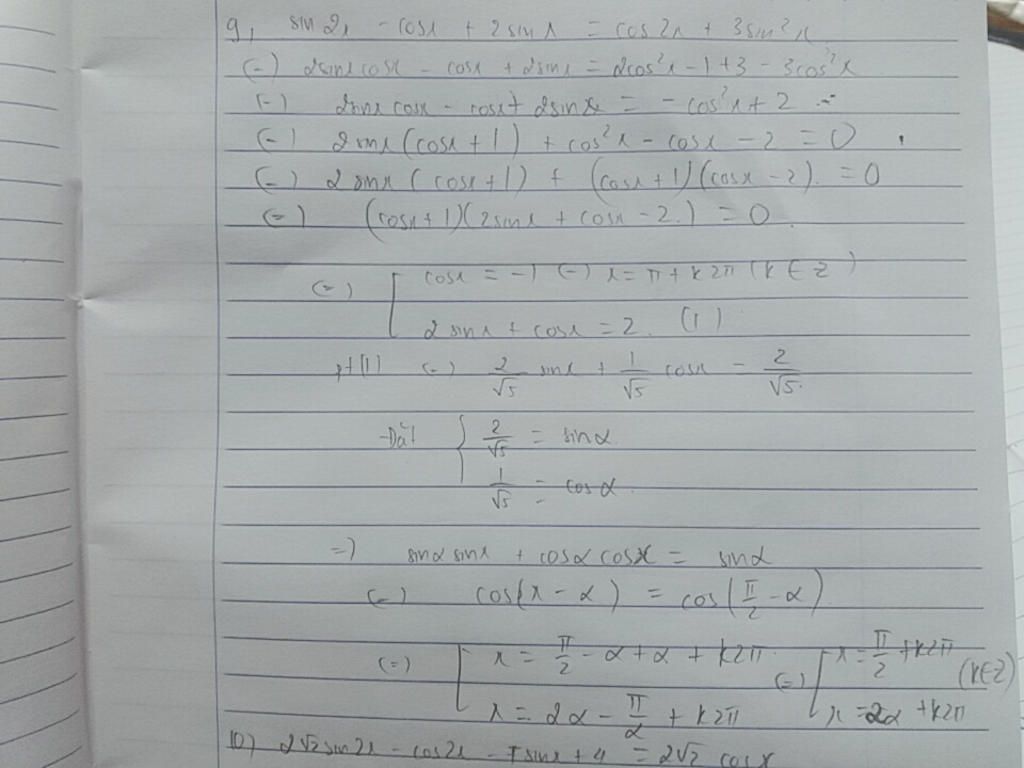 9, sin 2x - cosx + 2 sin x = cos 2x + 3 sin²x
(=) 2sinx cosx - cosx + 2sinx = 2cos²x - 1 + 3 - 3cos²x
(=) 2sinx cosx - cosx + 2sinx = -cos²x + 2
(=) 2 sinx (cosx + 1) + cos²x - cosx - 2 = 0
(=) 2 sinx (cosx + 1) + (cosx + 1)(cosx - 2) = 0
(=) (cosx + 1)(2sinx + cosx - 2) = 0
(=) [ cosx = -1 (=) x = π + k2π (k ∈ Z)
2 sinx + cosx = 2. (1)
pt(1) (=) 2/√5 sinx + 1/√5 cosx = 2/√5
-Đặt { 2/√5 = sinα
1/√5 = cosα
=) sinα sinx + cosα cosx = sinα
(=) cos(x - α) = cos(π/2 - α)
(=) [ x = π/2 - α + α + k2π (=) [ x = π/2 + k2π (k∈Z)
x = 2α - π/2 + k2π x = 2α + k2π
10) 2√2 sin2x - cos2x - 7 sinx + 4 = 2√2 cosx